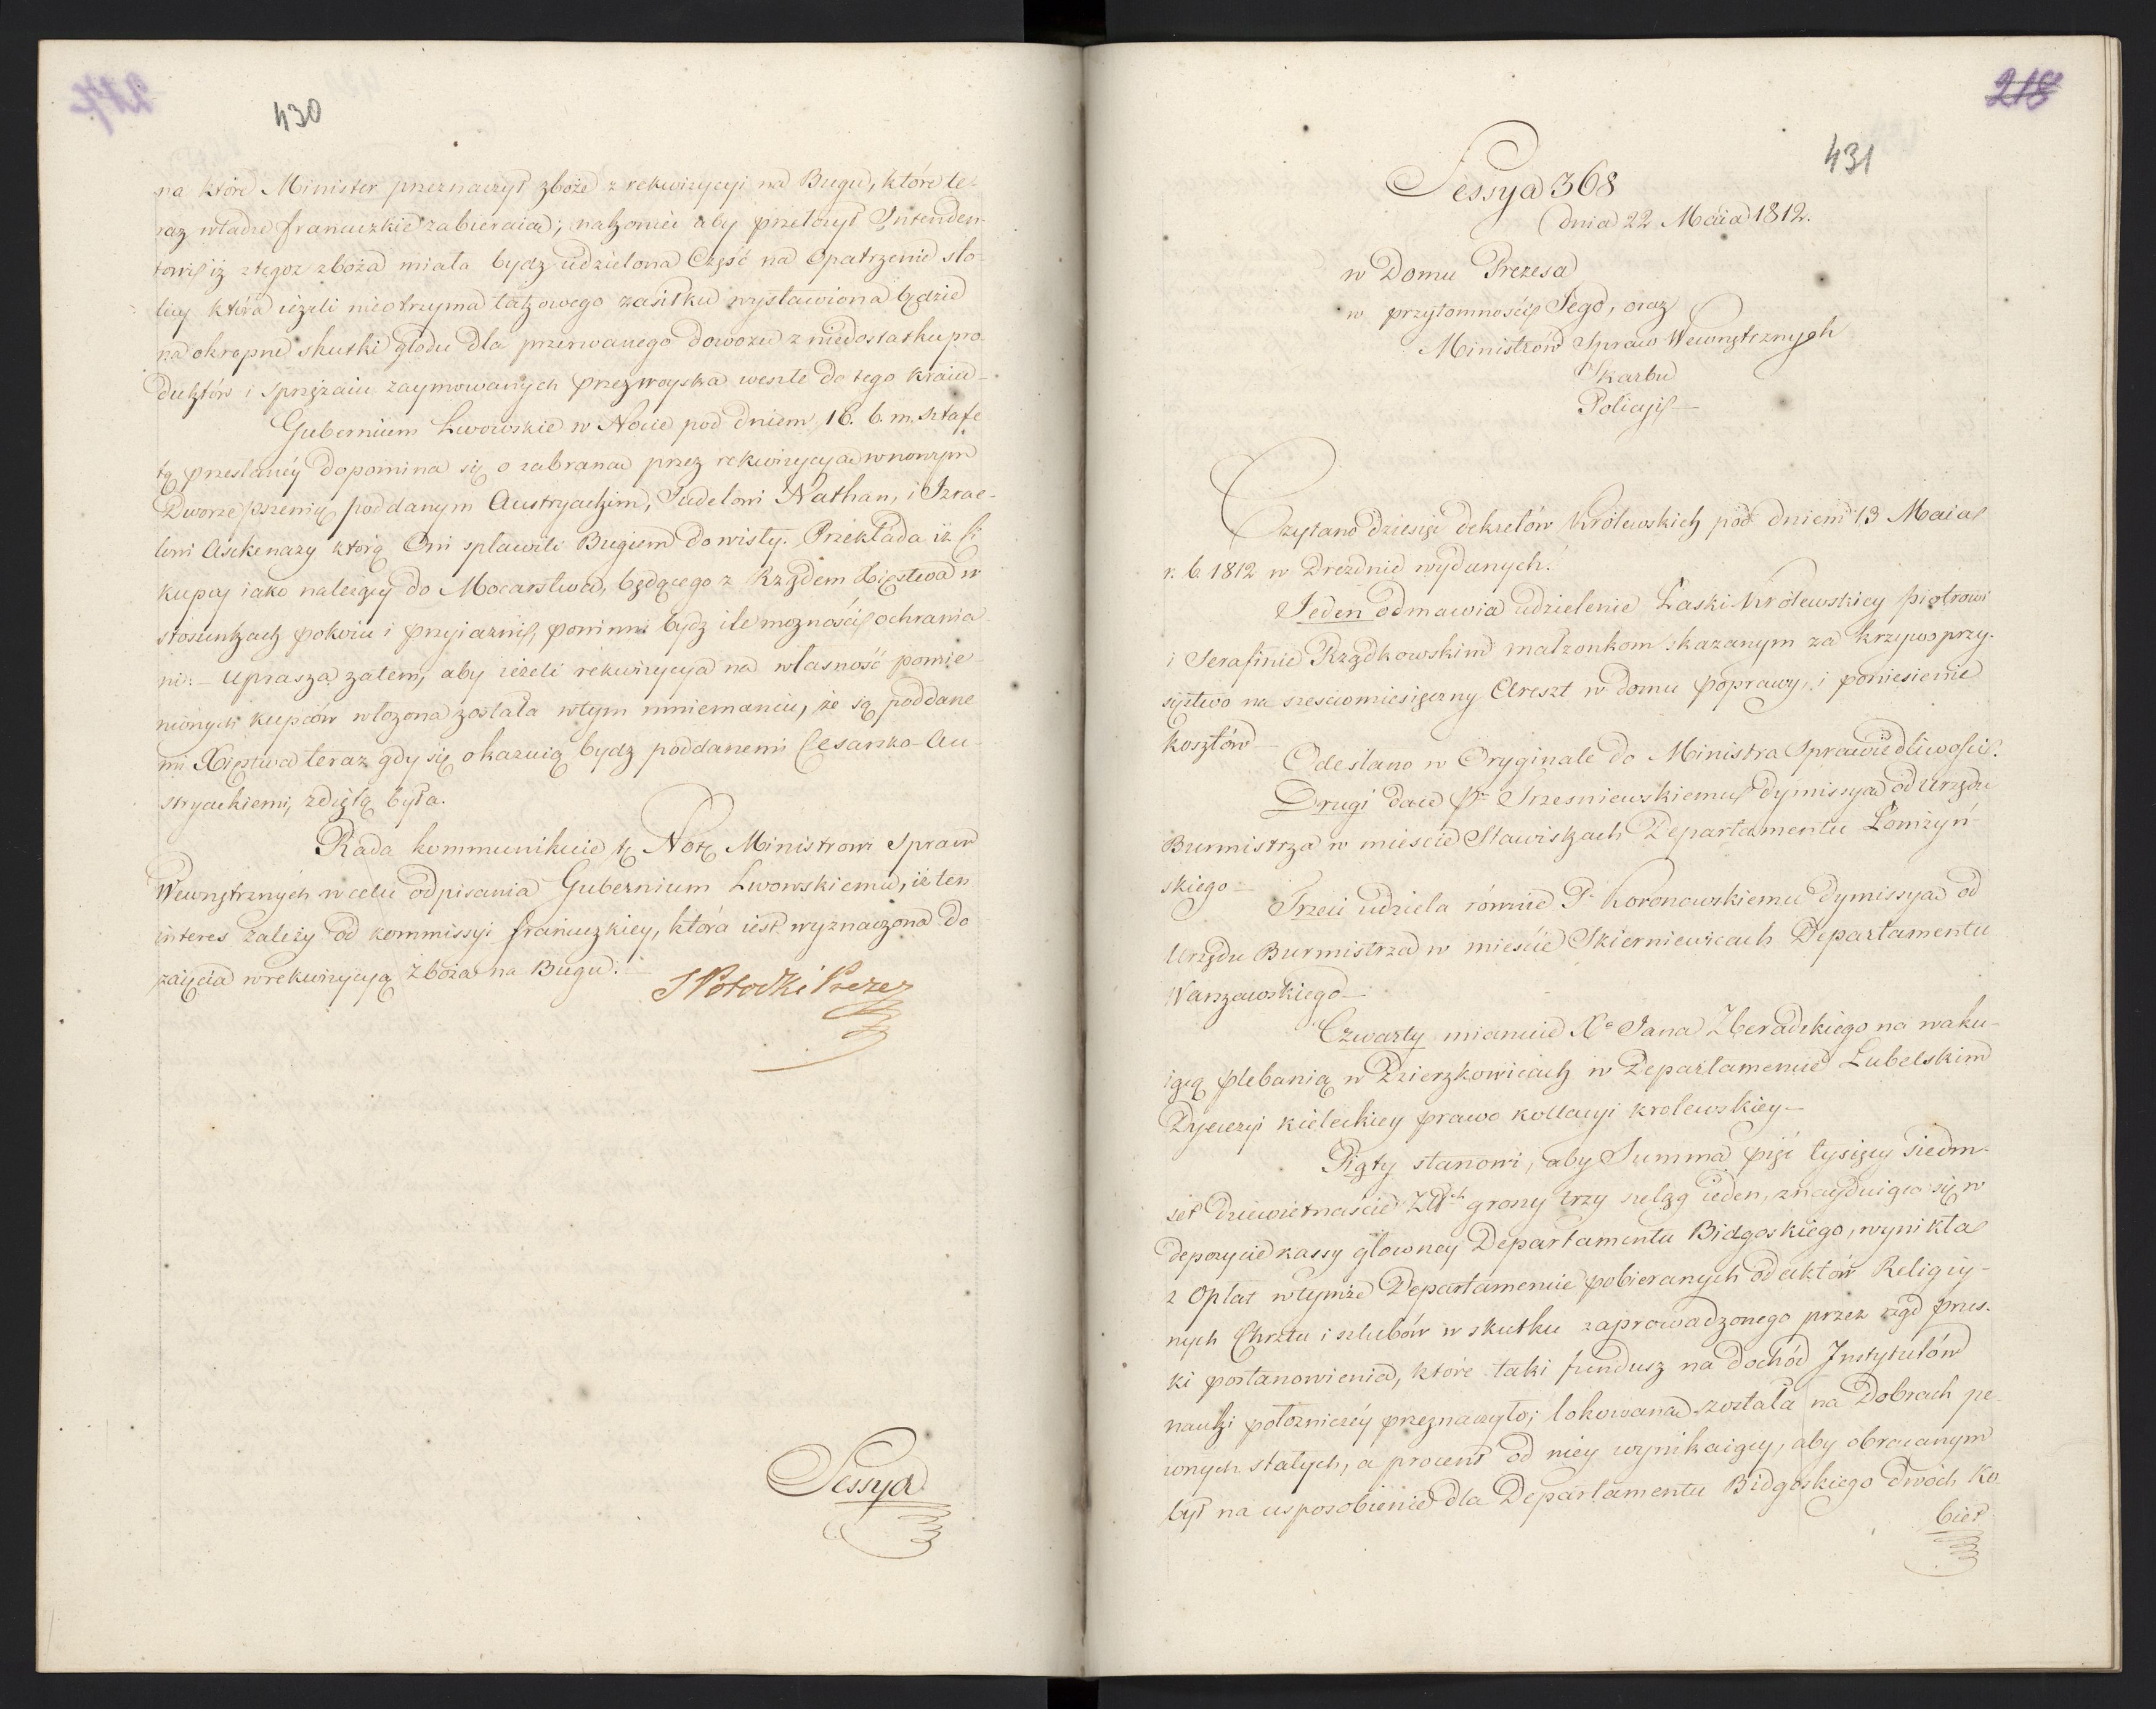 430
na które Minister przeznaczył zboże z rekwizycyi na Bugu, które te-
raz władze francuzkie zabieraią; nakoniec aby przełożył Intenden-
towi iż z tegoz zboża miała bydz udzielona Część na opatrzenie sto-
licy która ieżeli nieotrzyma takowego zasiłku wystawiona będzie
na okropne skutki głodu dla przerwanego dowozu z niedostatku pro-
duktów i sprzężaiu zaymowanych przez woyska weszłe do tego kraiu
Gubernium Lwowskie w Nocie pod dniem 16. b. m. sztafe
tą przesłanéy dopomina się o zabraną przez rekwizycyą w nowym
Dworze pszenicę poddanym Austryackim, Judelowi Nathan, i Izrae-
lowi Asckenazy którą Oni spławili Bugiem do wisły. Przekłada iż Ci
kupcy iako należący do Mocarstwa, będącego z Rządem Xięstwa w
stosunkach pokoiu i przyiazni, powinni bydz ile mozności ochrania-
ni. – Uprasza zatem, aby ieżeli rekwizycya na własność pomie-
nionych kupców włozona została w tym mniemaniu, że są poddane
mi Xięstwa teraz gdy się okazuią bydz poddanemi Cesarsko-Au-
stryackiemi, zdiętą była.
Rada kommunikuie tę Notę Ministrowi Spraw
Wewnętrznych w celu odpisania Gubernium Lwowskiemu, iż ten
interes zależy od kommissyi francuzkiey, która iest wyznaczona do
zaięcia w rekwizycyą zboża na Bugu. –
S Potocki Prezes
Sessya
218
431
Sessya 368
dnia 22 Maia 1812.
w Domu Prezesa
w przytomności Jego, oraz
Ministrów Spraw Wewnętrznych
Skarbu
Policyi –
Czytano dziesięć dekretów Królewskich pod dniem 13 Maia
r. b. 1812 w Dreznie wydanych.
Jeden odmawia udzielenie Łaski Królewskiey piotrowi
i Serafinie Rządkowskim małzonkom skazanym za krzywoprzy-
sięztwo na sześciomiesięczny Areszt w domu poprawy, i poniesienie
kosztów –
Odesłano w Oryginale do Ministra Sprawiedliwości.
Drugi daie Pu Trzesniewskiemu dymissyą od Urzędu
Burmistrza w mieście Stawiskach Departamentu Łomżyń-
skiego –
Trzeci udziela równie Pu Koronowskiemu Dymissyą od
Urzędu Burmistrza w mieście Skierniewicach Departamentu
Warszawskiego –
Czwarty mianuie Xa Jana Zberadzkiego na waku-
iącą plebanią w Dzierzkowicach w Departamencie Lubelskim
Dyecezyi kieleckiey prawo kollacyi krolewskiey –
Piąty stanowi, aby Summa pięć tysięcy siedm-
set dziewietnaście Złłch groszy trzy szeląg ieden, znayduiąca się w
depozycie kassy głowney Departamentu Bidgoskiego, wynikła
z Opłat w tymże Departamencie pobieranych od aktów Religiy-
nych Chrztu i szlubów w skutku zaprowadzonego przez rząd prus-
ki postanowienia, które taki fundusz na dochód Instytutów
nauki położniczéy przeznaczyło; lokowaną została na Dobrach pe-
wnych stałych, a procent od niey wynikaiący, aby obracanym
był na usposobienie dla Departamentu Bidgoskiego dwóch Ko-
biet